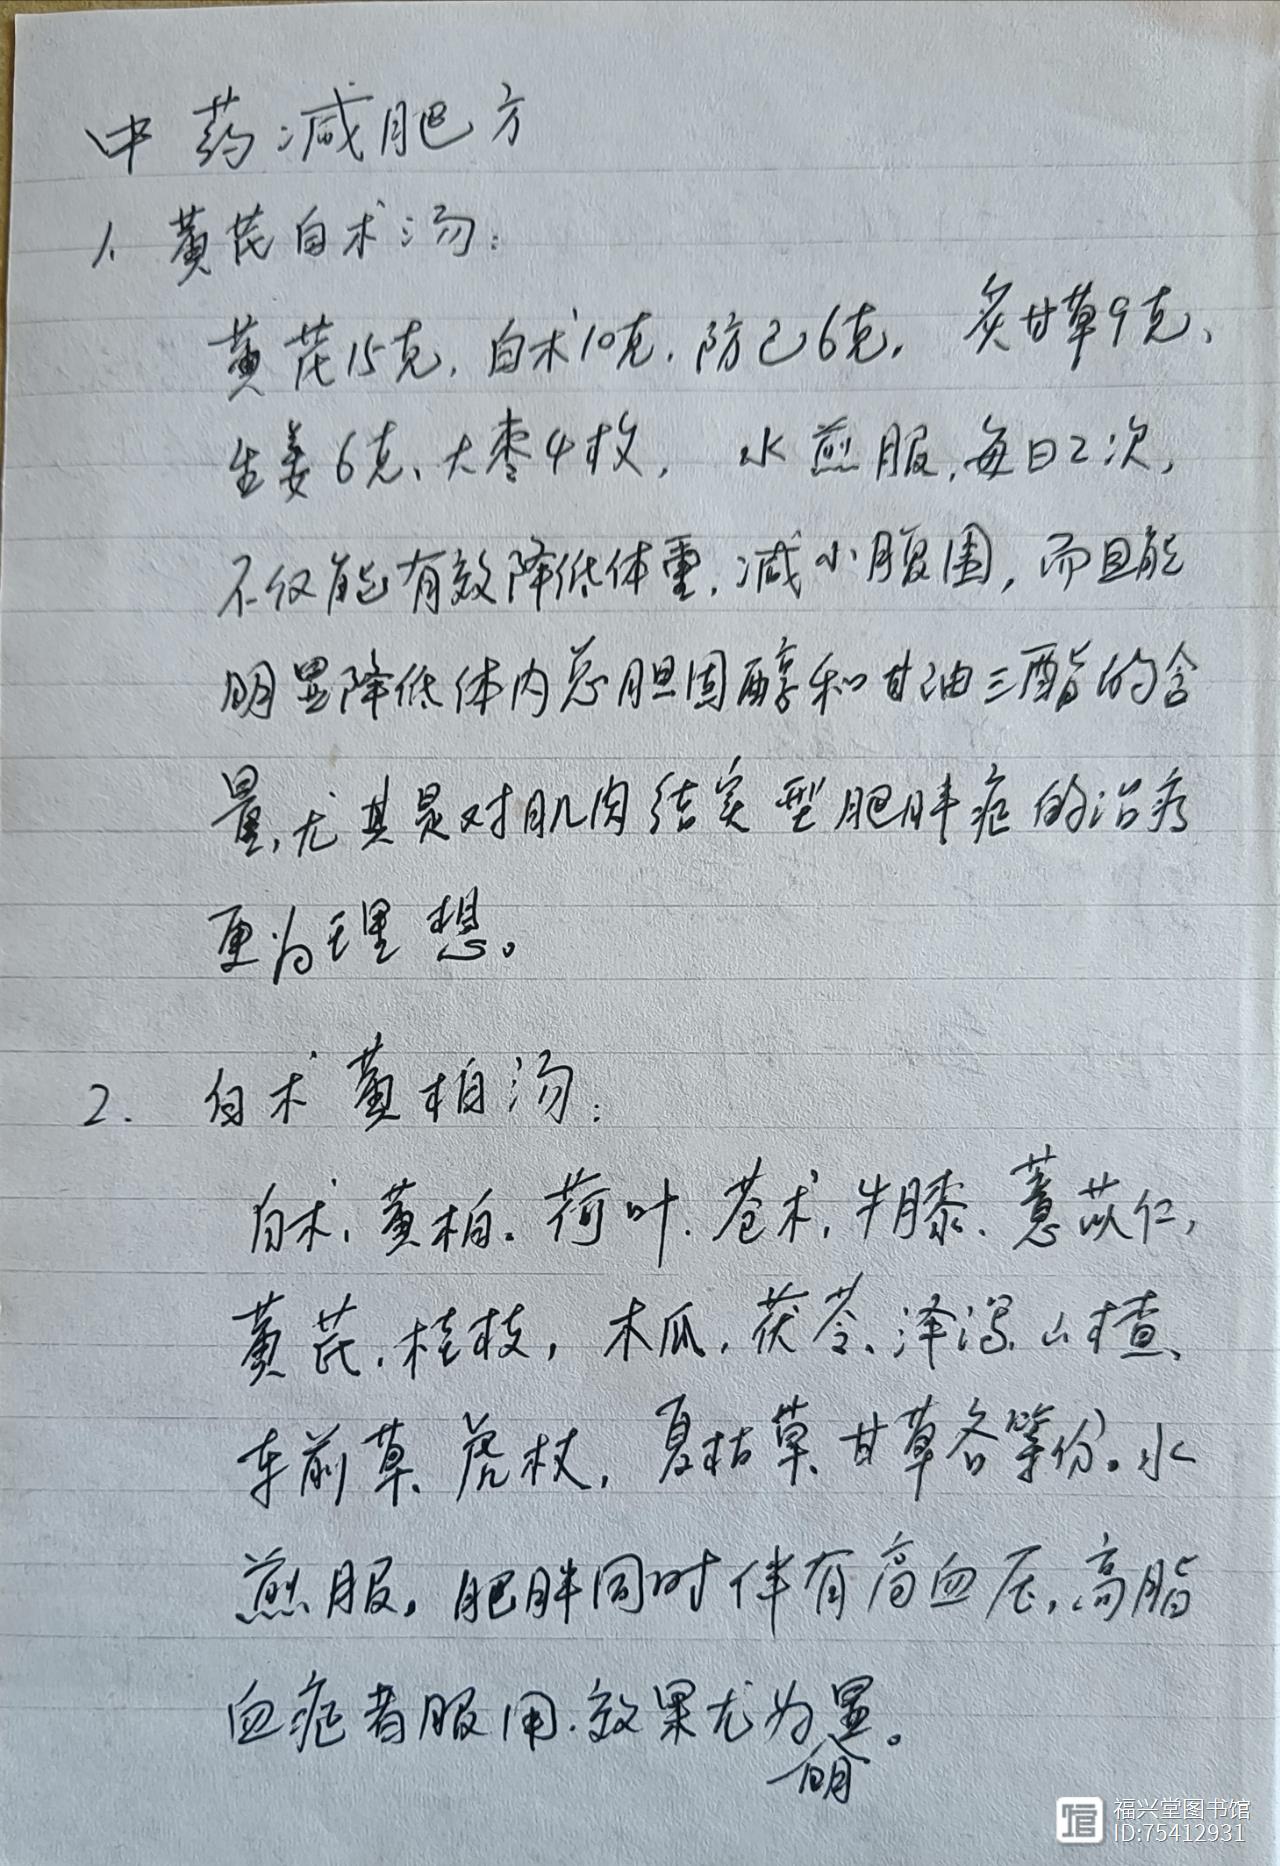 中药减肥方
1、黄芪白术汤：
黄芪15克，白术10克，防己6克，炙甘草9克、
生姜6克、大枣4枚，水煎服，每日2次，
不仅能有效降低体重，减小腹围，而且能
明显降低体内总胆固醇和甘油三酯的含
量，尤其是对肌肉结实型肥胖症的治疗
更为理想。
2. 白术黄柏汤：
白术，黄柏。荷叶、苍术，牛膝、薏苡仁，
黄芪，桂枝，木瓜，茯苓、泽泻、山楂、
车前草、虎杖，夏枯草、甘草各等份。水
煎服。肥胖同时伴有高血压，高脂
血症者服用，效果尤为明显。
福兴堂图书馆
ID:75412931